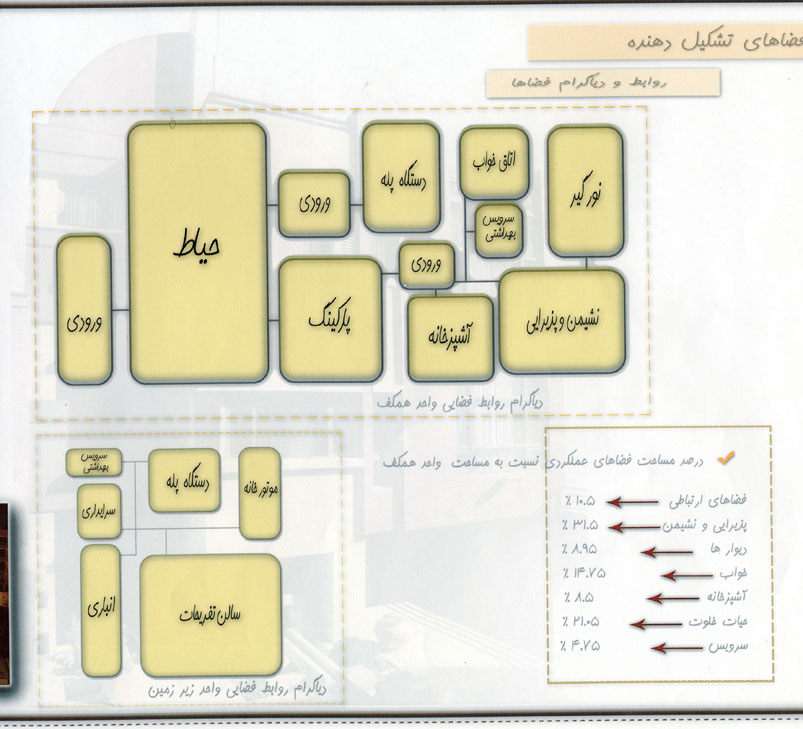 فضاهای تشکیل دهنده
روابط و دیاگرام فضاها
نور گیر
اتاق خواب
سرویس
بهداشتی
دستگاه پله
ورودی
حیاط
ورودی
نشیمن و پذیرایی
ورودی
آشپزخانه
پارکینگ
دیاگرام روابط فضایی واحد همکف
درصد مساحت فضاهای عملکردی نسبت به مساحت واحد همکف
فضاهای ارتباطی ۱۰.۵ ٪
پذیرایی و نشیمن ۳۱.۵ ٪
دیوار ها ۸.۹۵ ٪
خواب ۱۴.۷۵ ٪
آشپزخانه ۸.۵ ٪
حیات خلوت ۲۱.۰۵ ٪
سرویس ۴.۷۵ ٪
موتور خانه
دستگاه پله
سرویس
بهداشتی
سرایداری
سالن تفریحات
انباری
دیاگرام روابط فضایی واحد زیر زمین